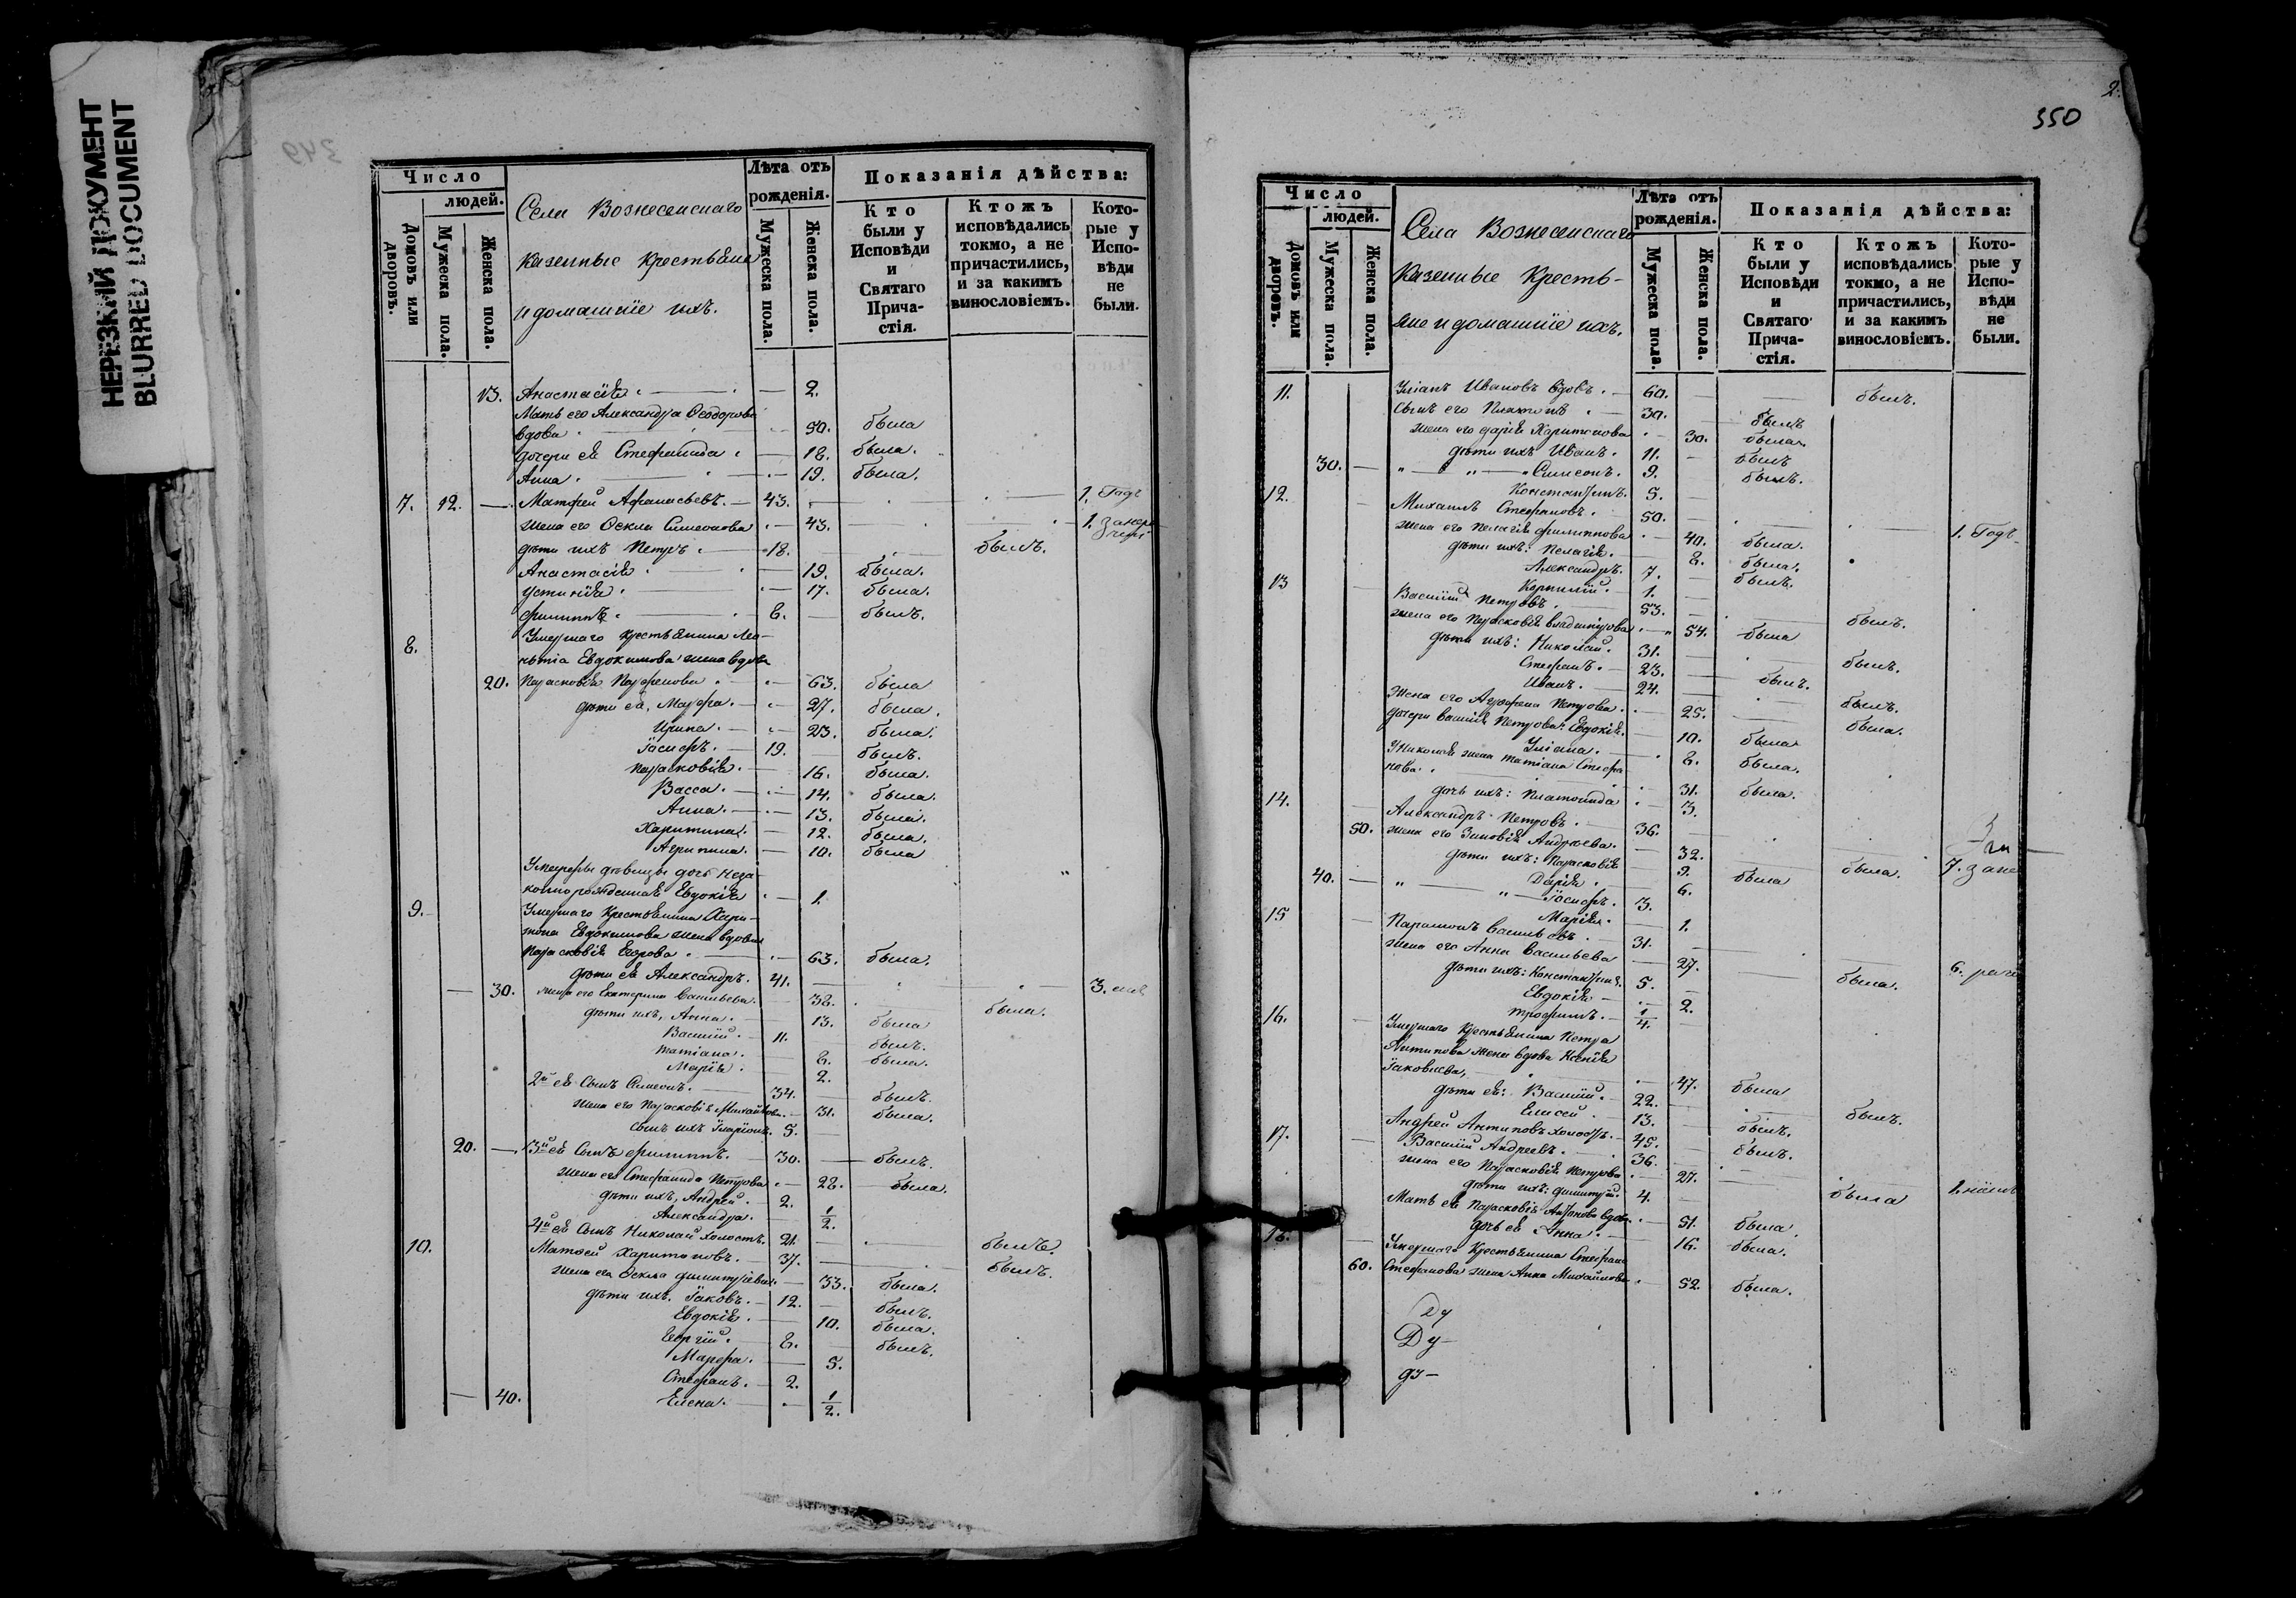 НЕРЕЗКИЙ ДОКУМЕНТ
BLURRED DOCUMENT
349
Число
людей.
Домовъ или дворовъ.
Мужеска пола.
Женска пола.
Села Вознесенскаго
казенные крестьяне
и домашніе ихъ.
Лѣта отъ рожденія.
Мужеска пола.
Женска пола.
Показанія дѣйства:
Кто были у Исповѣди и Святаго Причастія.
Ктожъ исповѣдались токмо, а не причастились, и за какимъ винословіемъ.
Которые у Исповѣди не были.
13. Анастасія. — 2.
Мать его Александра Ѳеодорова
вдова — 50. была
дочери ея Стефанида. — 18. была.
Анна. — 19. была.
7. 12. — Матфей Афанасьевъ. — 43. — 1. Годъ
жена его Ѳекла Симеонова — 43. — 1.
дѣти ихъ Петръ. — 18. — былъ.
Анастасія. — 19. была.
Устинія. — 17. была.
Филиппъ. — 8. — былъ.
8. Умершаго крестьянина Лео-
нтія Евдокимова жена вдова
20. Парасковія Парфенова. — 63. была
дѣти ея, Марфа. — 27. была.
Ирина. — 23. была.
Іосифъ. — 19. былъ.
Парасковія. — 16. была.
Васса. — 14. была.
Анна. — 13. была.
Харитина. — 12. была.
Агрипина. — 10. была
Умершей дѣвицы дочь неза-
коннорожденная Евдокія — 1.
9. Умершаго Крестьянина Хари-
тона Евдокимова жена вдова
Парасковія Егорова. — 63. была.
дѣти ея Александръ. 41. — 3.
— 30. жена его Екатерина Васильева. — 38. была.
дѣти ихъ, Анна. — 13. была
Василій. — 11. былъ.
Татіана. — 8. была.
Марія. — 2.
2й ея Сынъ Симеонъ. — 34. — былъ.
жена его Парасковія Михайлова. — 31. была.
сынъ ихъ Иларіонъ. 5.
20. — 3й ея Сынъ Филиппъ. — 30. — былъ.
жена его Стефанида Петрова. — 28. — была.
дѣти ихъ, Андрей. 2.
Александра. — 1/2.
4й ея Сынъ Николай холостъ. 21. — былъ.
10. Матвей Харитоновъ. 37. — былъ.
жена его Ѳекла Димитріева. — 33. была.
дѣти ихъ. Іаковъ. — 12. — былъ.
Евдокія. — 10. была.
Георгій. — 8. — былъ.
Марфа. — 5.
Стефанъ. — 2.
— 40. Елена. — 1/2.
2.
350
Число
людей.
Домовъ или дворовъ.
Мужеска пола.
Женска пола.
Села Вознесенскаго
казенные Кресть-
яне и домашніе ихъ.
Лѣта отъ рожденія.
Мужеска пола.
Женска пола.
Показанія дѣйства:
Кто были у Исповѣди и Святаго Причастія.
Ктожъ исповѣдались токмо, а не причастились, и за какимъ винословіемъ.
Которые у Исповѣди не были.
11. Уліанъ Ивановъ вдовъ. — 60. — былъ.
Сынъ его Платонъ. — 30. — былъ
жена его Дарія Харитонова — 30. была.
дѣти ихъ Иванъ. 11. — былъ
30. — „ — „ — Симеонъ. 9. былъ.
Константинъ. 5.
12. Михаилъ Стефановъ. — 50. — 1. Годъ
жена его Пелагія Филиппова — 40. была.
дѣти ихъ: Пелагія. — 8. была.
Александръ. 7. — былъ.
Корнилій. 1.
13 Василій Петровъ. 53. — былъ.
жена его Парасковія Владимірова — 54. была
дѣти ихъ: Николай. 31. — былъ.
Стефанъ. — 23. — былъ.
Иванъ. — 24. — былъ.
Жена его Агрофена Петрова. — 25. — была.
дочери Василія Петрова: Евдокія. — 10. была
Уліана. — 8. была.
У Николая жена Татіана Стефа
нова. — 31. была.
дочь ихъ: Платонида — 3.
14. Александръ Петровъ. — 36.
50. жена его Зиновія Андреева. — 32. — была. 7.
дѣти ихъ: Парасковія 9. была
40. — „ — Дарія. 6.
„ — Іосифъ. 3.
Марія. — 1.
15 Парамонъ Васильевъ. — 31. — 6.
жена его Анна Васильева — 27. — была.
дѣти ихъ: Константинъ. 5.
Евдокія — 2.
Трофимъ. — 1/4.
16. Умершаго Крестьянина Петра
Антипова жена вдова Ксенія
Іаковлева, — 47. была
дѣти ея: Василій. 22. — былъ.
Елисей. 13. — былъ.
Андрей Антиповъ холостъ. — 45. — былъ.
17. Василій Андреевъ. 36. — 1.
жена его Парасковія Петрова — 27. — была
дѣти ихъ: Димитрій. 4.
Мать ея Парасковія Антонова вдова. — 51. была.
дочь ея Анна. — 16. была.
18. Умершаго Крестьянина Стефана
60. Стефанова жена Анна Михайлова. — 52. была.
Ду
Ду-
ду-